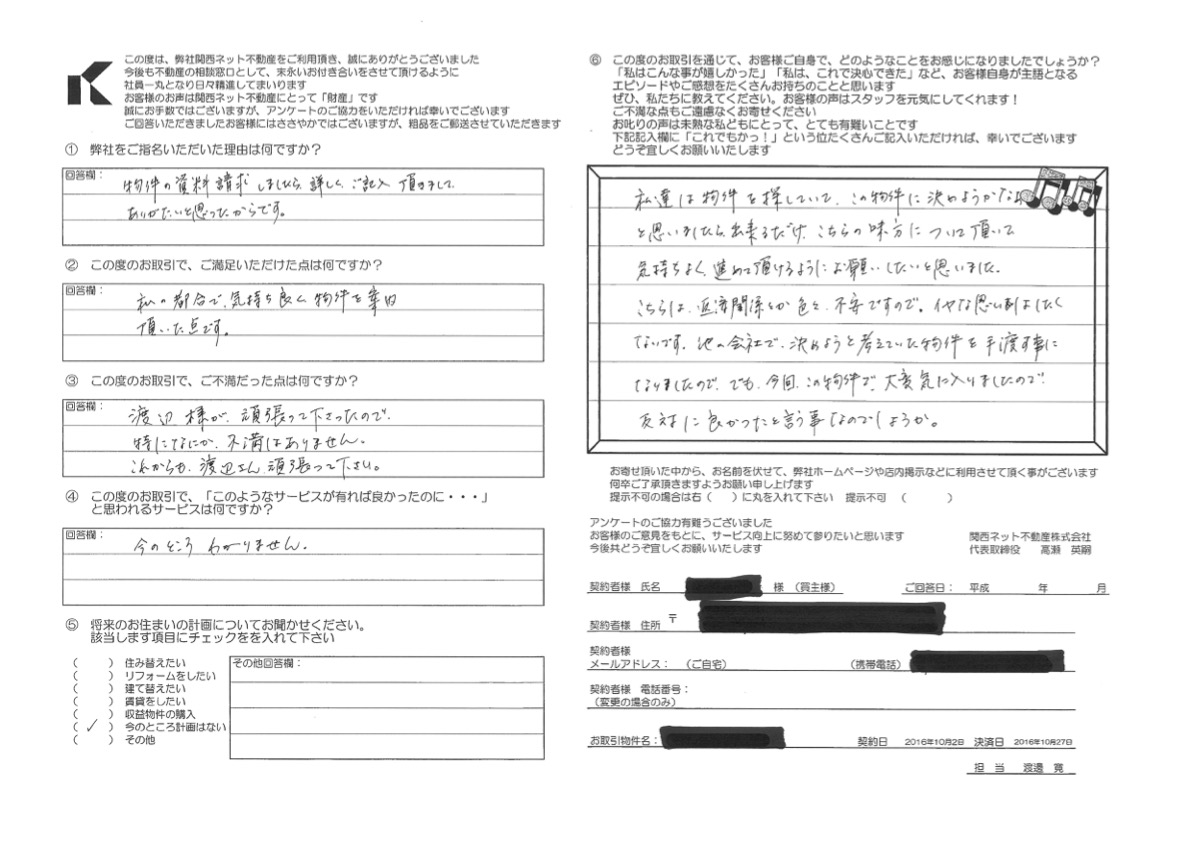 この度は、弊社関西ネット不動産をご利用頂き、誠にありがとうございました
今後も不動産の相談窓口として、末永いお付き合いをさせて頂けるように
社員一丸となり日々精進してまいります
お客様のお声は関西ネット不動産にとって「財産」です
誠にお手数ではございますが、アンケートのご協力をいただければ幸いでございます
ご回答いただきましたお客様にはささやかではございますが、粗品をご郵送させていただきます
① 弊社をご指名いただいた理由は何ですか？
回答欄：
物件の資料請求しましたら、詳しく、ご記入頂きまして、
ありがたいと思ったからです。
② この度のお取引で、ご満足いただけた点は何ですか？
回答欄：
私の都合で、気持ち良く、物件を案内
頂いた点です。
③ この度のお取引で、ご不満だった点は何ですか？
回答欄：
渡辺様が、頑張って下さったので、
特になにか、不満はありません。
これからも、渡辺さん、頑張って下さい。
④ この度のお取引で、「このようなサービスが有れば良かったのに・・・」
と思われるサービスは何ですか？
回答欄：
今のところ わかりません。
⑤ 将来のお住まいの計画についてお聞かせください。
該当します項目にチェックをを入れて下さい
（ ） 住み替えたい
（ ） リフォームをしたい
（ ） 建て替えたい
（ ） 賃貸をしたい
（ ） 収益物件の購入
（ ✓ ） 今のところ計画はない
（ ） その他
その他回答欄：
⑥ この度のお取引を通じて、お客様ご自身で、どのようなことをお感じになりましたでしょうか？
「私はこんな事が嬉しかった」「私は、これで決心できた」など、お客様自身が主語となる
エピソードやご感想をたくさんお持ちのことと思います
ぜひ、私たちに教えてください。お客様の声はスタッフを元気にしてくれます！
ご不満な点もご遠慮なくお寄せください
お叱りの声は未熟な私どもにとって、とても有難いことです
下記記入欄に「これでもかっ！」という位たくさんご記入いただければ、幸いでございます
どうぞ宜しくお願いいたします
私達は物件を探していて、この物件に決めようかなぁ
と思いましたら、出来るだけ、こちらの味方について頂いて
気持ちよく、進めて頂けるようにお願いしたいと思いました。
こちらは、返済関係とか色々、不安ですので、イヤな思いはしたく
ないです。他の会社で、決めようと考えていた物件を手渡す事に
なりましたので、でも、今回、この物件で、大変気に入りましたので
反対に良かったと言う事なのでしょうか。
お寄せ頂いた中から、お名前を伏せて、弊社ホームページや店内掲示などに利用させて頂く事がございます
何卒ご了承頂きますようお願い申し上げます
提示不可の場合は右（ ）に丸を入れて下さい 提示不可 （ ）
アンケートのご協力有難うございました
お客様のご意見をもとに、サービス向上に努めて参りたいと思います
今後共どうぞ宜しくお願いいたします
関西ネット不動産株式会社
代表取締役 高瀬 英嗣
契約者様 氏名 様 （買主様） ご回答日： 平成 年 月
契約者様 住所 〒
契約者様
メールアドレス： （ご自宅） （携帯電話）
契約者様 電話番号：
（変更の場合のみ）
お取引物件名： 契約日 2016年10月2日 決済日 2016年10月27日
担 当 渡邊 寛